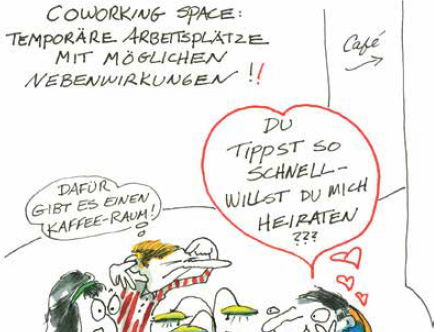 COWORKING SPACE:
TEMPORÄRE ARBEITSPLÄTZE
MIT MÖGLICHEN
NEBENWIRKUNGEN!!
Café
DU
TIPPST SO
SCHNELL-
WILLST DU MICH
HEIRATEN
???
DAFÜR
GIBT ES EINEN
KAFFEE-RAUM!